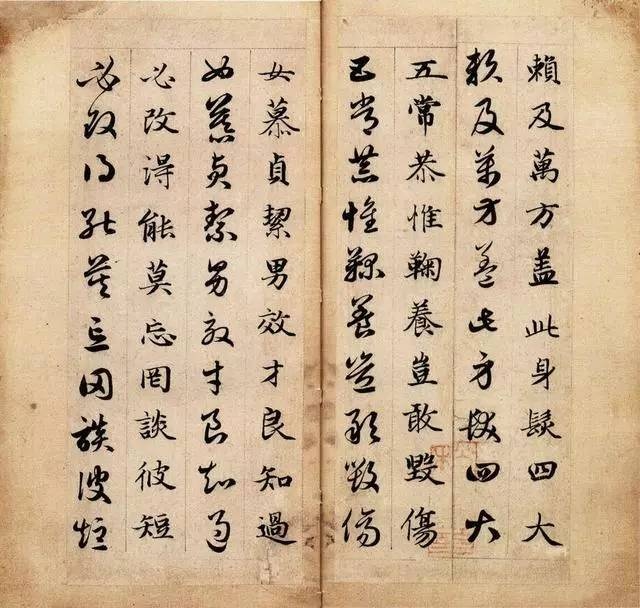 賴及萬方蓋此身髮四大
賴及萬方蓋此身髮四大
五常恭惟鞠養豈敢毀傷
五常恭惟鞠養豈敢毀傷
女慕貞絜男效才良知過
女慕貞絜男效才良知過
必改得能莫忘罔談彼短
必改得能莫忘罔談彼短